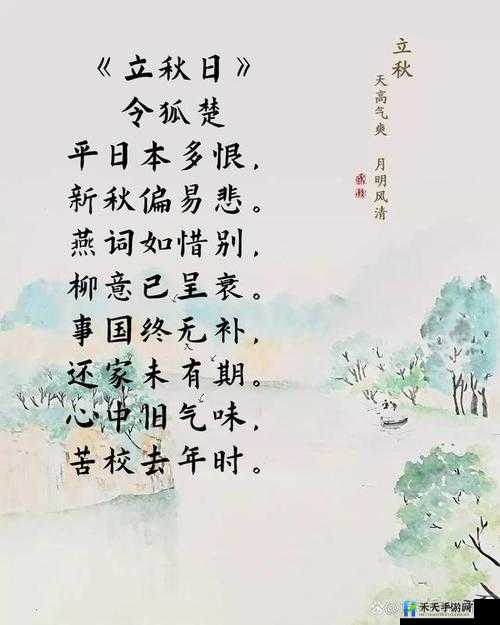 《立秋日》
令狐楚
平日本多恨，
新秋偏易悲。
燕词如惜别，
柳意已呈衰。
事国终无补，
还家未有期。
心中旧气味，
苦校去年时。
立秋
天高气爽 月明风清
禾天手游网